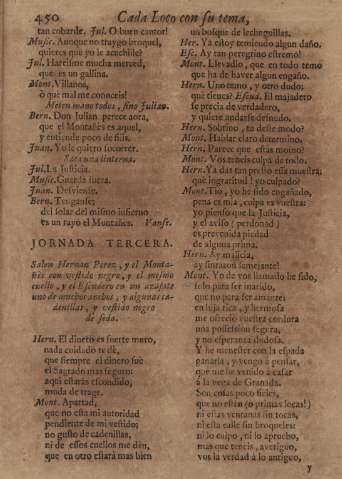 450 Cada Loco con su tema,
tan cobarde. Jul. O buen cantor!
Music. Aunque no traygo broquel,
quieres que yo le acuchille?
Jul. Harèisme mucha merced,
que es un gallina.
Mont. Villanos,
ò que mal me conoceis!
Meten mano todos, sino Julian.
Bern. Don Julian perece aora,
que el Montañès es aquel,
y entiende poco de fiis.
Juan. Yo le quiero socorrer.
Saca una linterna.
Jul. La Justicia.
Music. Guarda fuera.
Juan. Desviense.
Bern. Tenganse;
del solar del mismo infierno
es un rayo el Montañès. Vanse.
JORNADA TERCERA.
Salen Hernan Perez, y el Monta-
ñès con vestido negro, y el mismo
cuello, y el Escudero en un azafate
uno de muchos anchos, y algunas ca-
denillas, y vestido negro
de seda.
Hern. El dinero es fuerte muro,
nada cuidado te dè,
que siempre el dinero fue
el Sagrado mas seguro:
aqui estaràs escondido,
muda de trage.
Mont. Apartad,
que no està mi autoridad
pendiente de mi vestido;
no gusto de cadenillas,
ni de essos cuellos me dèn,
que en otro estarà mas bien
un bosque de lechuguillas.
Her. Ya estoy temiendo algun daño.
Esc. Ay tan peregrino estremo!
Mont. Llevadlo, que en todo temo
que ha de haver algun engaño.
Hern. Uno temo, y otro dudo:
què tienes? Escud. El majadero
se precia de verdadero,
y quiere andarse desnudo.
Hern. Sobrino, tu deste modo?
Mont. Hablar claro determino.
Hern. Parece que estàs mohino?
Mont. Vos teneis culpa de todo.
Hern. Ya das tan presto essa muestra:
què ingratitud! yo culpado?
Mont. Tio, yo he sido engañado,
pena es mia, culpa es vuestra:
yo pienso que la Justicia,
y el aviso (perdonad)
es parecida piedad
de alguna prima.
Hern. Ay malicia,
ay sinrazon semejante!
Mont. Yo de vos llamado he sido,
solo para ser marido,
que no para ser amante:
en hija rica, y hermosa
me ofreciò vuestra cordura
una possession segura,
y no esperanza dudosa.
Y he menester con la espada
ganarla, y vengo à pensar,
que me he venido à casar
à la vega de Granada.
Son cosas poco fieles,
que no estèn (ò primas locas!)
ni essas ventanas sin tocas,
ni esta calle sin broqueles:
ni lo culpo, ni lo apruebo,
mas que teneis, averiguo,
vos la verdad à lo antiguo,
y